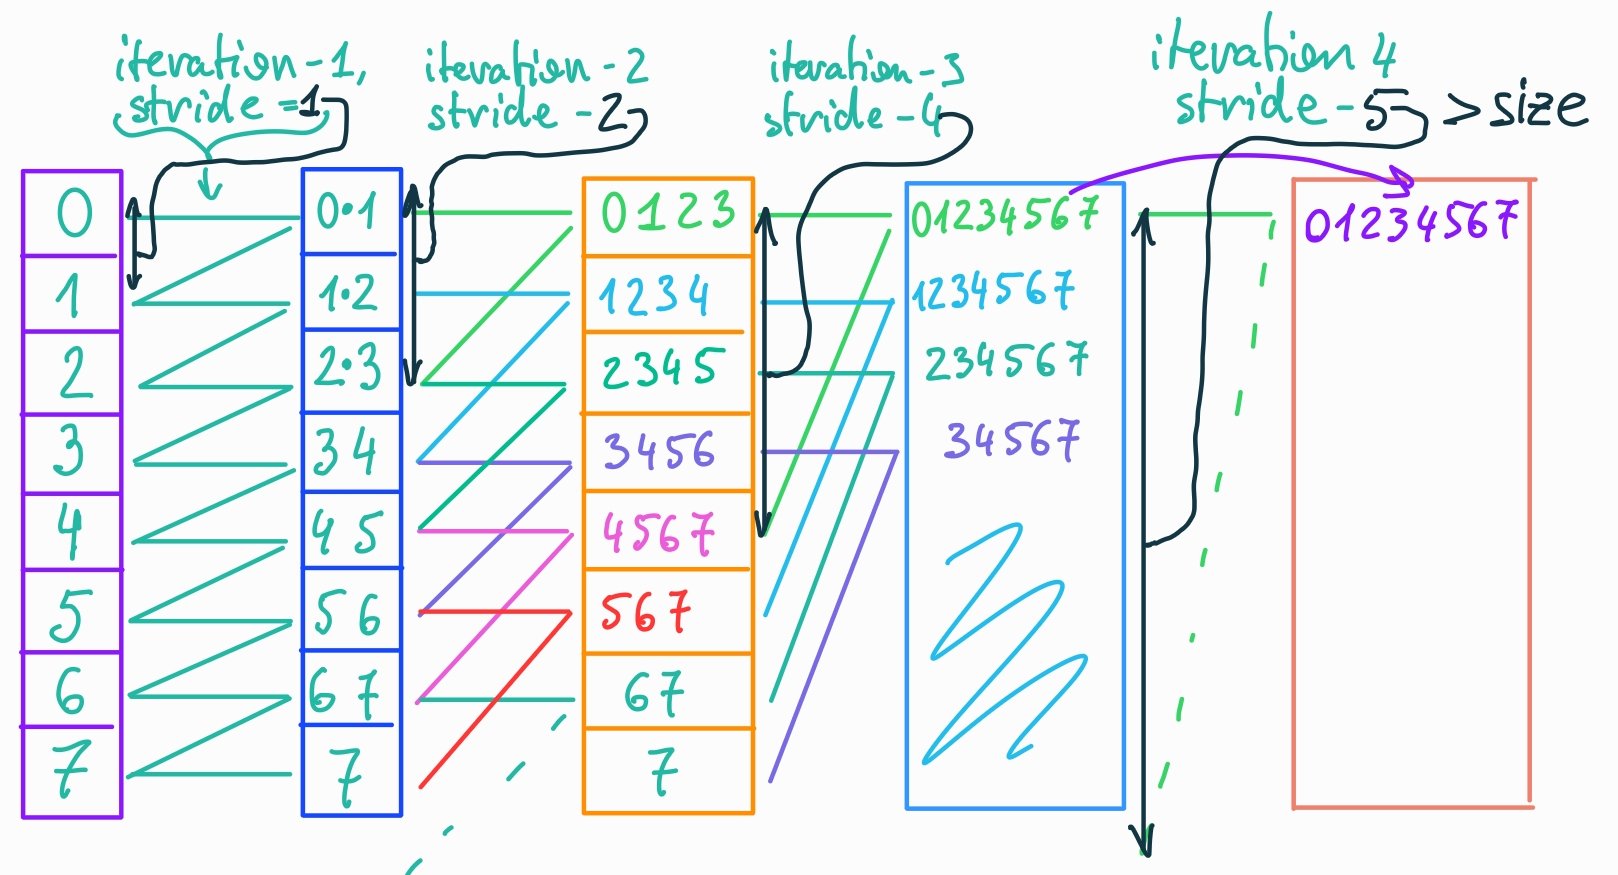 iteration-1,
stride =1
iteration-2
stride-2
iteration-3
stride-4
iteration 4
stride-5 >size
0
1
2
3
4
5
6
7
0·1
1·2
2·3
3 4
4 5
5 6
6 7
7
0 1 2 3
1 2 3 4
2 3 4 5
3 4 5 6
4 5 6 7
5 6 7
6 7
7
0 1 2 3 4 5 6 7
1 2 3 4 5 6 7
2 3 4 5 6 7
3 4 5 6 7
0 1 2 3 4 5 6 7